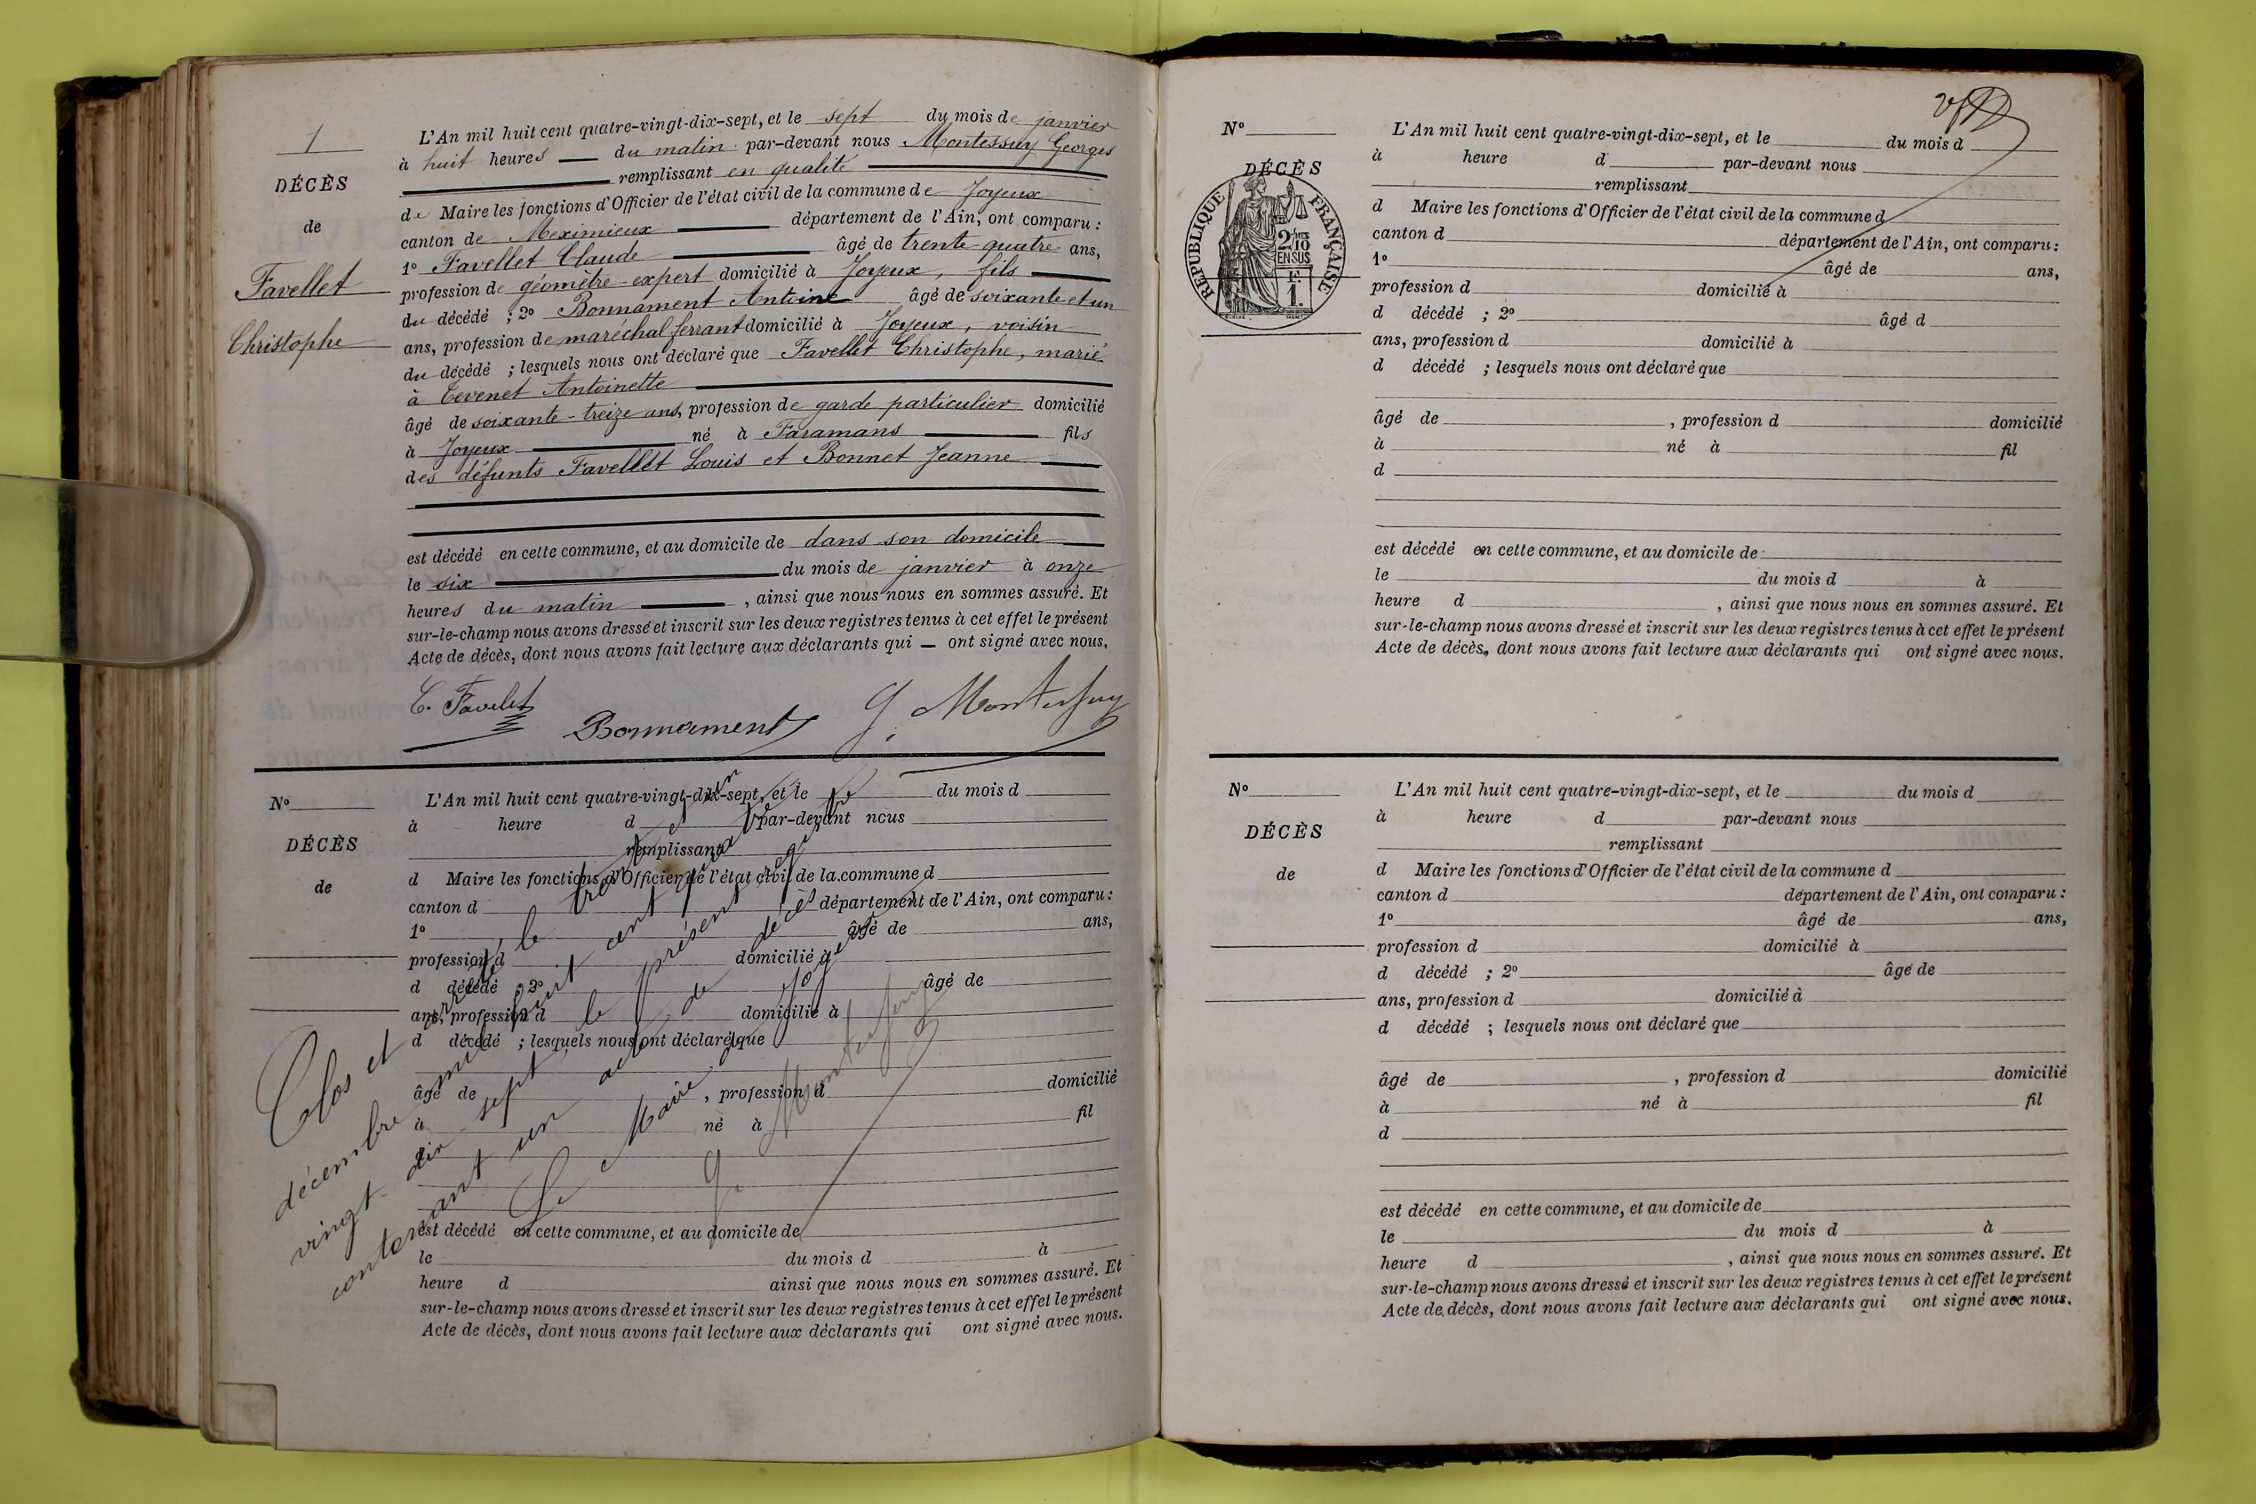 1
DÉCÈS
de
Favellet
Christophe
L'An mil huit cent quatre-vingt-dix-sept, et le sept du mois de janvier
à huit heures du matin par-devant nous Montessuy Georges
remplissant en qualité
de Maire les fonctions d'Officier de l'état civil de la commune de Joyeux
canton de Meximieux département de l'Ain, ont comparu :
1º Favellet Claude âgé de trente-quatre ans,
profession de géomètre-expert domicilié à Joyeux, fils
du décédé ; 2º Bonnament Antoine âgé de soixante et un
ans, profession de maréchal ferrant domicilié à Joyeux, voisin
du décédé ; lesquels nous ont déclaré que Favellet Christophe, marié
à Tevenet Antoinette
âgé de soixante-treize ans, profession de garde particulier domicilié
à Joyeux né à Faramans fils
des défunts Favellet Louis et Bonnet Jeanne
est décédé en cette commune, et au domicile de dans son domicile
le six du mois de janvier à onze
heures du matin, ainsi que nous nous en sommes assuré. Et
sur-le-champ nous avons dressé et inscrit sur les deux registres tenus à cet effet le présent
Acte de décès, dont nous avons fait lecture aux déclarants qui — ont signé avec nous.
C. Favelet Bonnament G. Montessuy
Nº
DÉCÈS
de
L'An mil huit cent quatre-vingt-dix-sept, et le du mois d
à heure d par-devant nous
remplissant
d Maire les fonctions d'Officier de l'état civil de la commune d
canton d département de l'Ain, ont comparu :
1º âgé de ans,
profession d domicilié à
d décédé ; 2º âgé de
ans, profession d domicilié à
d décédé ; lesquels nous ont déclaré que
âgé de , profession d domicilié
à né à fil
d
est décédé en cette commune, et au domicile de
le du mois d à
heure d ainsi que nous nous en sommes assuré. Et
sur-le-champ nous avons dressé et inscrit sur les deux registres tenus à cet effet le présent
Acte de décès, dont nous avons fait lecture aux déclarants qui ont signé avec nous.
Clos et arrêté, le trente et un
décembre mil huit cent quatre
vingt-dix-sept, le présent registre
contenant un acte de décès
Le Maire de Joyeux
G. Montessuy
Nº
DÉCÈS
RÉPUBLIQUE FRANÇAISE
2/10
EN SUS
1F.
L'An mil huit cent quatre-vingt-dix-sept, et le du mois d
à heure d par-devant nous
remplissant
d Maire les fonctions d'Officier de l'état civil de la commune d
canton d département de l'Ain, ont comparu :
1º âgé de ans,
profession d domicilié à
d décédé ; 2º âgé d
ans, profession d domicilié à
d décédé ; lesquels nous ont déclaré que
âgé de , profession d domicilié
à né à fil
d
est décédé en cette commune, et au domicile de
le du mois d à
heure d , ainsi que nous nous en sommes assuré. Et
sur-le-champ nous avons dressé et inscrit sur les deux registres tenus à cet effet le présent
Acte de décès, dont nous avons fait lecture aux déclarants qui ont signé avec nous.
Nº
DÉCÈS
de
L'An mil huit cent quatre-vingt-dix-sept, et le du mois d
à heure d par-devant nous
remplissant
d Maire les fonctions d'Officier de l'état civil de la commune d
canton d département de l'Ain, ont comparu :
1º âgé de ans,
profession d domicilié à
d décédé ; 2º âgé de
ans, profession d domicilié à
d décédé ; lesquels nous ont déclaré que
âgé de , profession d domicilié
à né à fil
d
est décédé en cette commune, et au domicile de
le du mois d à
heure d , ainsi que nous nous en sommes assuré. Et
sur-le-champ nous avons dressé et inscrit sur les deux registres tenus à cet effet le présent
Acte de décès, dont nous avons fait lecture aux déclarants qui ont signé avec nous.